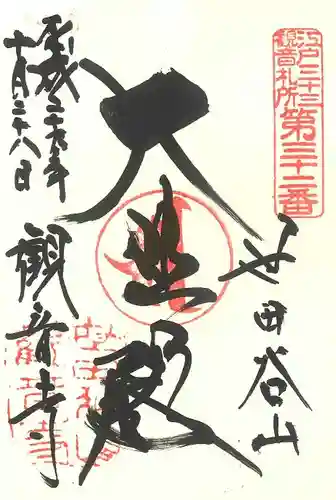 江戸三十三
観音札所
第三十二番
世田谷山
大悲殿
平成年
十月二十八日
観音寺